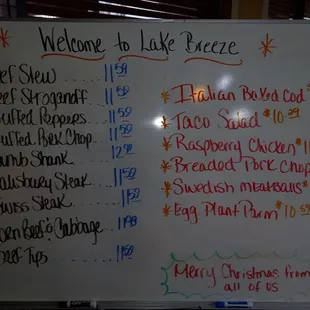 Welcome to Lake Breeze
eef Stew 11.59
eef Stroganoff 11.59
uffed Peppers 11.59
uffed Pork Chop 11.59
amb Shank 12.99
alisbury Steak 11.59
wiss Steak 11.59
orn Beef & Cabbage 11.99
eef Tips 11.59
* Italian Baked Cod
* Taco Salad * 10.59
* Raspberry Chicken * 11
* Breaded Pork Chop
* Swedish meatballs
* Egg Plant Parm * 10.59
Merry Christmas from
all of us